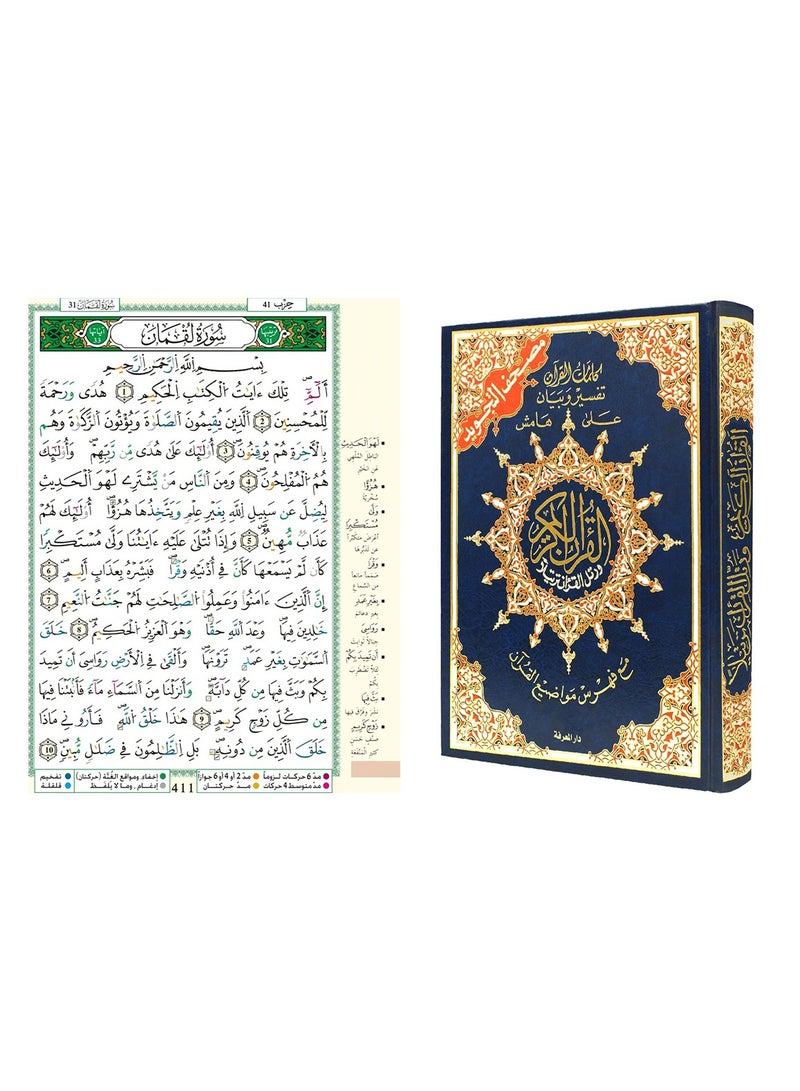 حِزب 41
سُورَةُ لُقْمَان 31
ترتيبها 31
سُورَةُ لُقْمَان
آياتها 33
بِسْمِ اِللَّهِ اِلرَّحْمَٰنِ اِلرَّحِيمِ
أَلَٓمِّٓۖ تِلْكَ ءَايَٰتُ اُلْكِتَٰبِ اِلْحَكِيمِ 1 هُدىً وَرَحْمَةً
لِّلْمُحْسِنِينَ 2 اَلَّذِينَ يُقِيمُونَ اَلصَّلَوٰةَ وَيُوتُونَ اَلزَّكَوٰةَ وَهُم
بِالَاخِرَةِ هُمْ يُوقِنُونَۖ 3 أُوْلَٰٓئِكَ عَلَىٰ هُدىً مِّن رَّبِّهِمْۖ وَأُوْلَٰٓئِكَ
هُمُ اُلْمُفْلِحُونَۖ 4 وَمِنَ اَلنَّاسِ مَنْ يَّشْتَرِے لَهْوَ اَلْحَدِيثِ
لِيُضِلَّ عَن سَبِيلِ اِللَّهِ بِغَيْرِ عِلْمٖ وَيَتَّخِذُهَا هُزُؤاًۖ اُوْلَٰٓئِكَ لَهُمْ
عَذَابٌ مُّهِينٌۖ 5 وَإِذَا تُتْلَىٰ عَلَيْهِ ءَايَٰتُنَا وَلَّىٰ مُسْتَكْبِراً
كَأَن لَّمْ يَسْمَعْهَا كَأَنَّ فِےٓ أُذْنَيْهِ وَقْراًۖ فَبَشِّرْهُ بِعَذَابٍ اَلِيمٍۖ 6
إِنَّ اَلذِينَ ءَامَنُواْ وَعَمِلُواْ اُلصَّٰلِحَٰتِ لَهُمْ جَنَّٰتُ اُلنَّعِيمِ 7
خَٰلِدِينَ فِيهَاۖ وَعْدَ اَللَّهِ حَقّاًۖ وَهُوَ اَلْعَزِيزُ اُلْحَكِيمُۖ 8 خَلَقَ
اَلسَّمَٰوَٰتِ بِغَيْرِ عَمَدٖ تَرَوْنَهَاۖ وَأَلْقَىٰ فِے اِلَارْضِ رَوَٰسِيَ أَن تَمِيدَ
بِكُمْ وَبَثَّ فِيهَا مِن كُلِّ دَآبَّةٖۖ وَأَنزَلْنَا مِنَ اَلسَّمَآءِ مَآءً فَأَنۢبَتْنَا فِيهَا
مِن كُلِّ زَوْجٖ كَرِيمٍۖ 9 هَٰذَا خَلْقُ اُللَّهِۖ فَأَرُونِے مَاذَا
خَلَقَ اَلذِينَ مِن دُونِهِۦۖ بَلِ اِلظَّٰلِمُونَ فِے ضَلَٰلٖ مُّبِينٖۖ 10
لَهْوَ اَلْحَدِيثِ
الباطل المُلْهي
عن الخير
هُزُؤاً
سُخْرِيَّة
وَلَّىٰ
مُسْتَكْبِراً
أعرَضَ متكبِّراً
عن تدبُّرها
وَقْراً
صَمَماً مانعاً
من السَّماع
بِغَيْرِ عَمَدٖ
بغير دعائم
رَوَٰسِيَ
جبالاً ثوابت
أَن تَمِيدَ بِكُمْ
لئلّا تضْطَرِبَ
بكُم
بَثَّ فِيهَا
نَشَرَ وفرَّق فيها
زَوْجٖ كَرِيمٍ
صِنْفٍ حَسَنٍ
كثير المنفعة
مدّ 6 حركات لـزوماً
مدّ 2 أو 4 أو 6 جوازاً
إخفاء، ومواقع الغُنَّة (حركتان)
تفخيم
مدّ متوسط 4 حركات
مــدّ حــركتــان
411
إدغام، وما لا يُلفَظ
قلقلة
مصحف التجويد
كلمات القرآن
تفسير وبيان
على هامش
القرآن الكريم
ورتل القرآن ترتيلا
مع فهرس مواضيع القرآن
دار المعرفة
القرآن الكريم ورتل القرآن ترتيلا